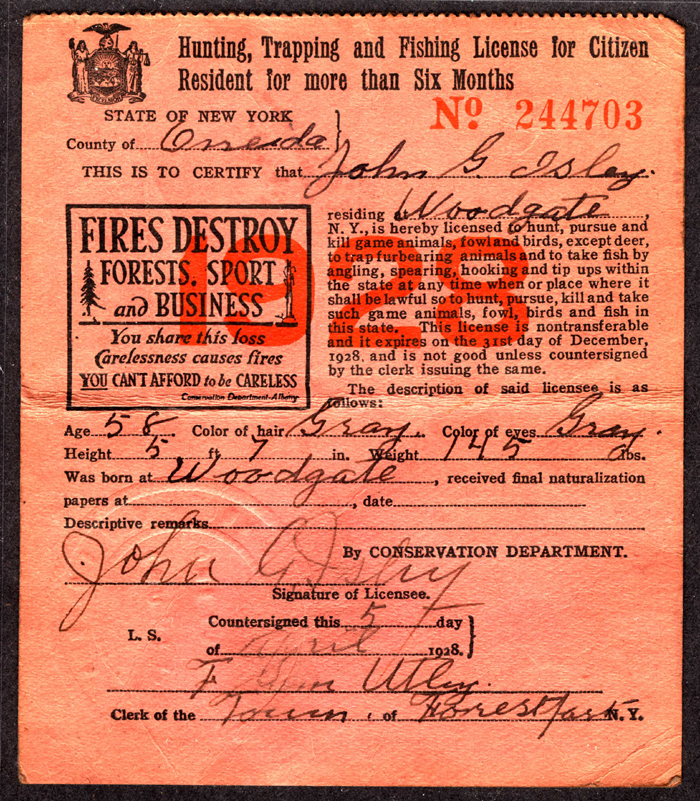 Hunting, Trapping and Fishing License for Citizen
Resident for more than Six Months
STATE OF NEW YORK
No 244703
County of Oneida
THIS IS TO CERTIFY that John G. Isley.
FIRES DESTROY
FORESTS, SPORT
and BUSINESS
You share this loss
Carelessness causes fires
YOU CAN'T AFFORD to be CARELESS
Conservation Department-Albany
1928
residing at Woodgate,
N. Y., is hereby licensed to hunt, pursue and
kill game animals, fowl and birds, except deer,
to trap furbearing animals and to take fish by
angling, spearing, hooking and tip ups within
the state at any time when or place where it
shall be lawful so to hunt, pursue, kill and take
such game animals, fowl, birds and fish in
this state. This license is nontransferable
and it expires on the 31st day of December,
1928, and is not good unless countersigned
by the clerk issuing the same.
The description of said licensee is as
follows:
Age 58 Color of hair Gray. Color of eyes Gray.
Height 5 ft 7 in. Weight 145 lbs.
Was born at Woodgate, received final naturalization
papers at , date
Descriptive remarks
By CONSERVATION DEPARTMENT.
John G Isley
Signature of Licensee.
Countersigned this 5 day
L. S.
of April 1928.
F Utley.
Clerk of the Town, of Forestport N. Y.